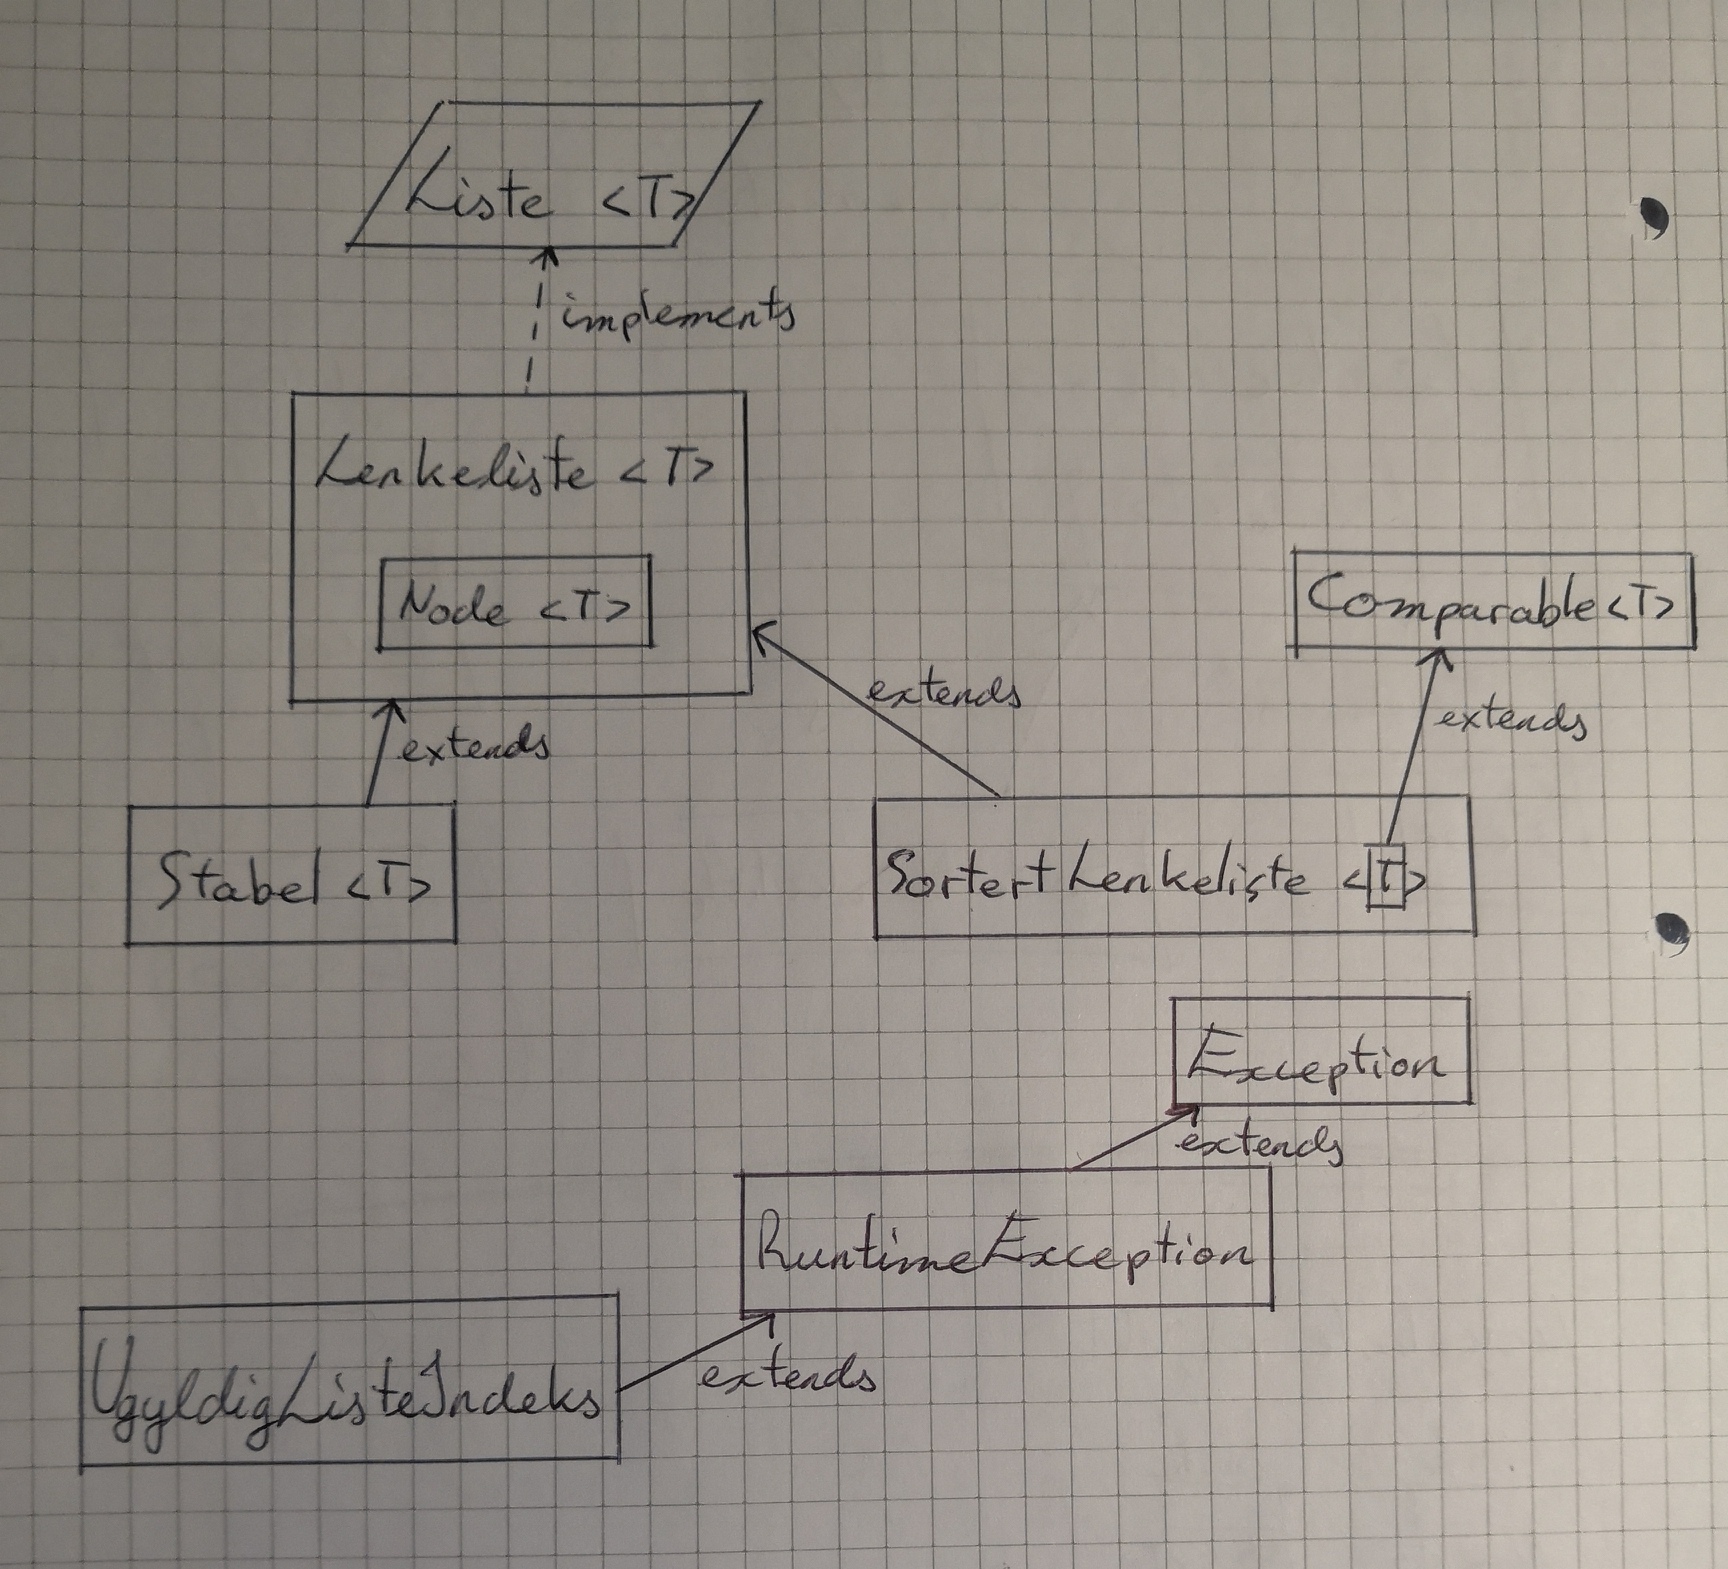 Liste <T>
implements
Lenkeliste <T>
Node <T>
Comparable<T>
extends
extends
extends
Stabel <T>
SortertLenkeliste <T>
Exception
extends
RuntimeException
extends
UgyldigListeIndeks